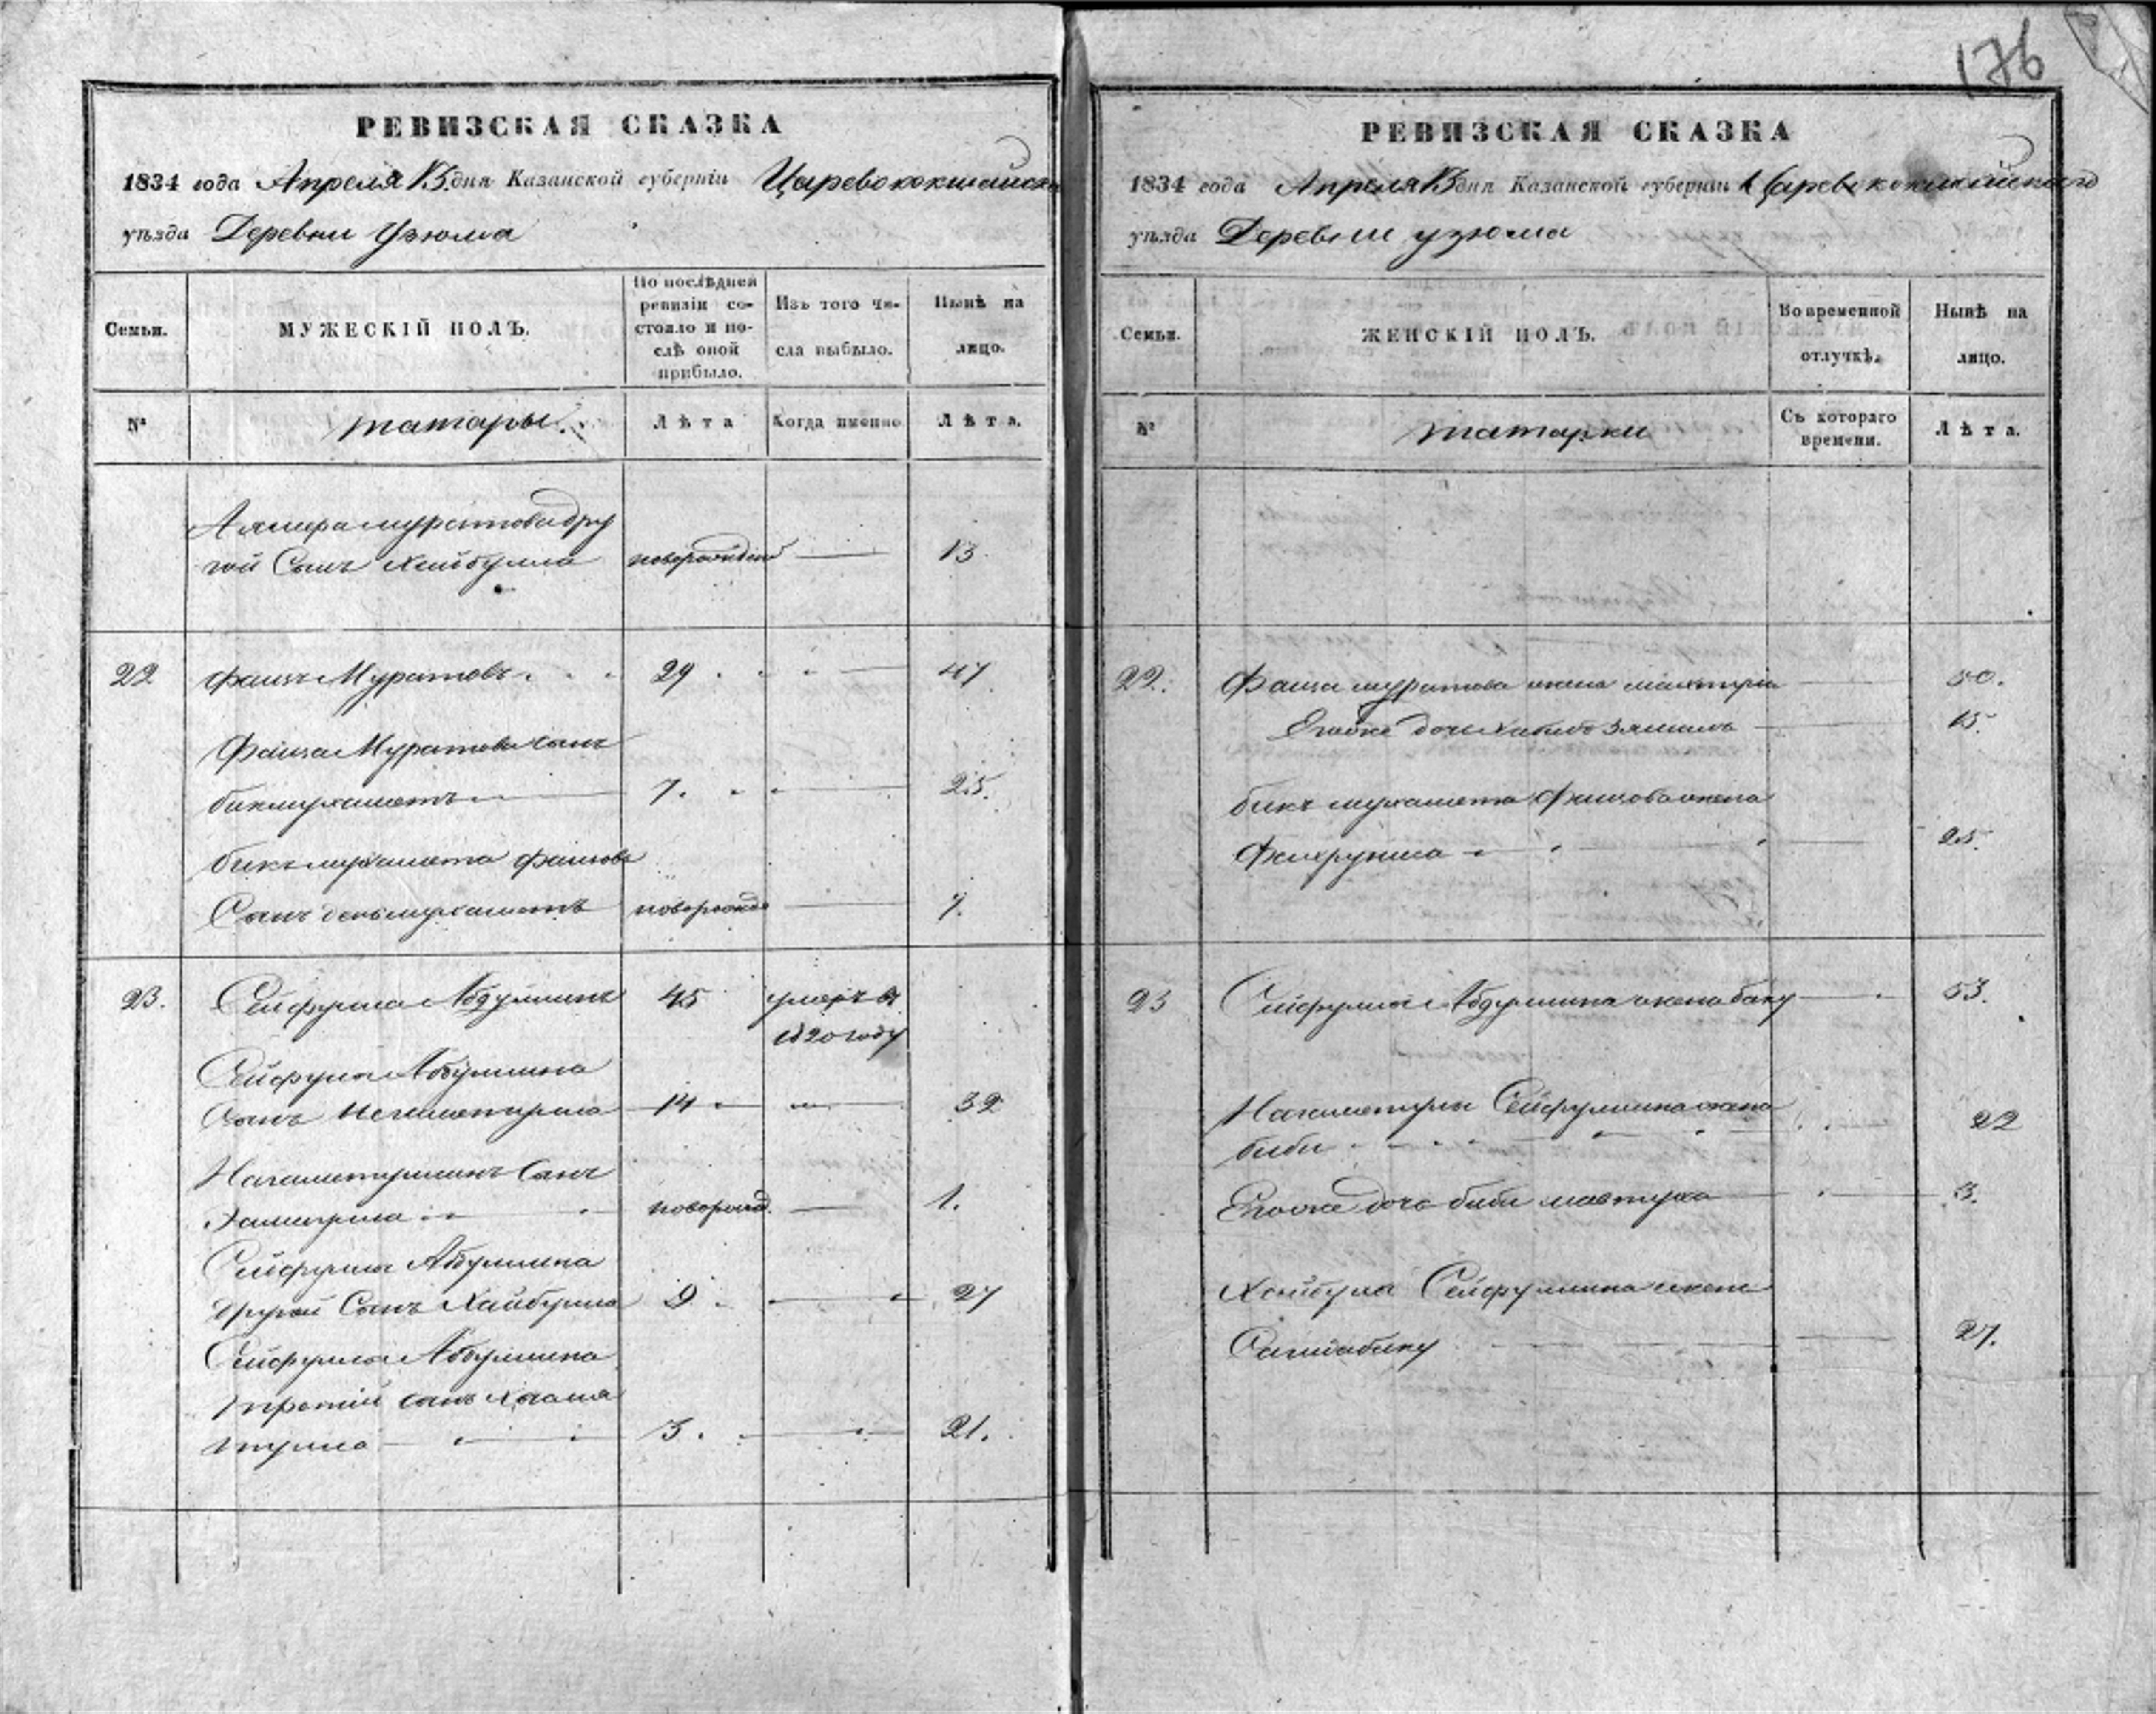 176
РЕВИЗСКАЯ СКАЗКА
1834 года Апреля 13 дня Казанской губерніи Царевококшайска
уѣзда Деревни Узюма
Семьи.
МУЖЕСКІЙ ПОЛЪ.
По послѣдней ревизіи состояло и послѣ оной прибыло.
Изъ того числа выбыло.
Нынѣ на лицо.
№
татары.
Лѣта
Когда именно
Лѣта.
муратова дру
гой Сынъ Хайбулла новорожден 13
22 Фаизъ Муратовъ 29 47
Фаиза Муратова сынъ
бикмухаметъ 7. 25.
бикъ мухамета фаизова
Сынъ мухаметъ новорожд 7.
23. Сейфулла Абдуллинъ 45 умеръ въ
1820 году
Сейфулла Абдуллина
Сынъ 14 32
Сынъ
новорожд. 1.
Сейфуллы Абдуллина
другой Сынъ Хайбулла 9 27
Сейфулла Абдуллина
третій сынъ
тулла 3. 21.
РЕВИЗСКАЯ СКАЗКА
1834 года Апреля 13 дня Казанской губерніи Царевококшайскаго
уѣзда Деревни узюма
Семьи.
ЖЕНСКІЙ ПОЛЪ.
Во временной отлучкѣ.
Нынѣ на лицо.
№
татарки
Съ котораго времени.
Лѣта.
22. Фаиза муратова жена 50.
Его же дочь 15.
бикъ мухамета Фаизова жена
Фахруниса 25.
23 Сейфулла Абдуллина жена бану 53.
Сейфуллина жена
биби 22
Его же дочь биби 3.
Хайбулла Сейфуллина жена
27.